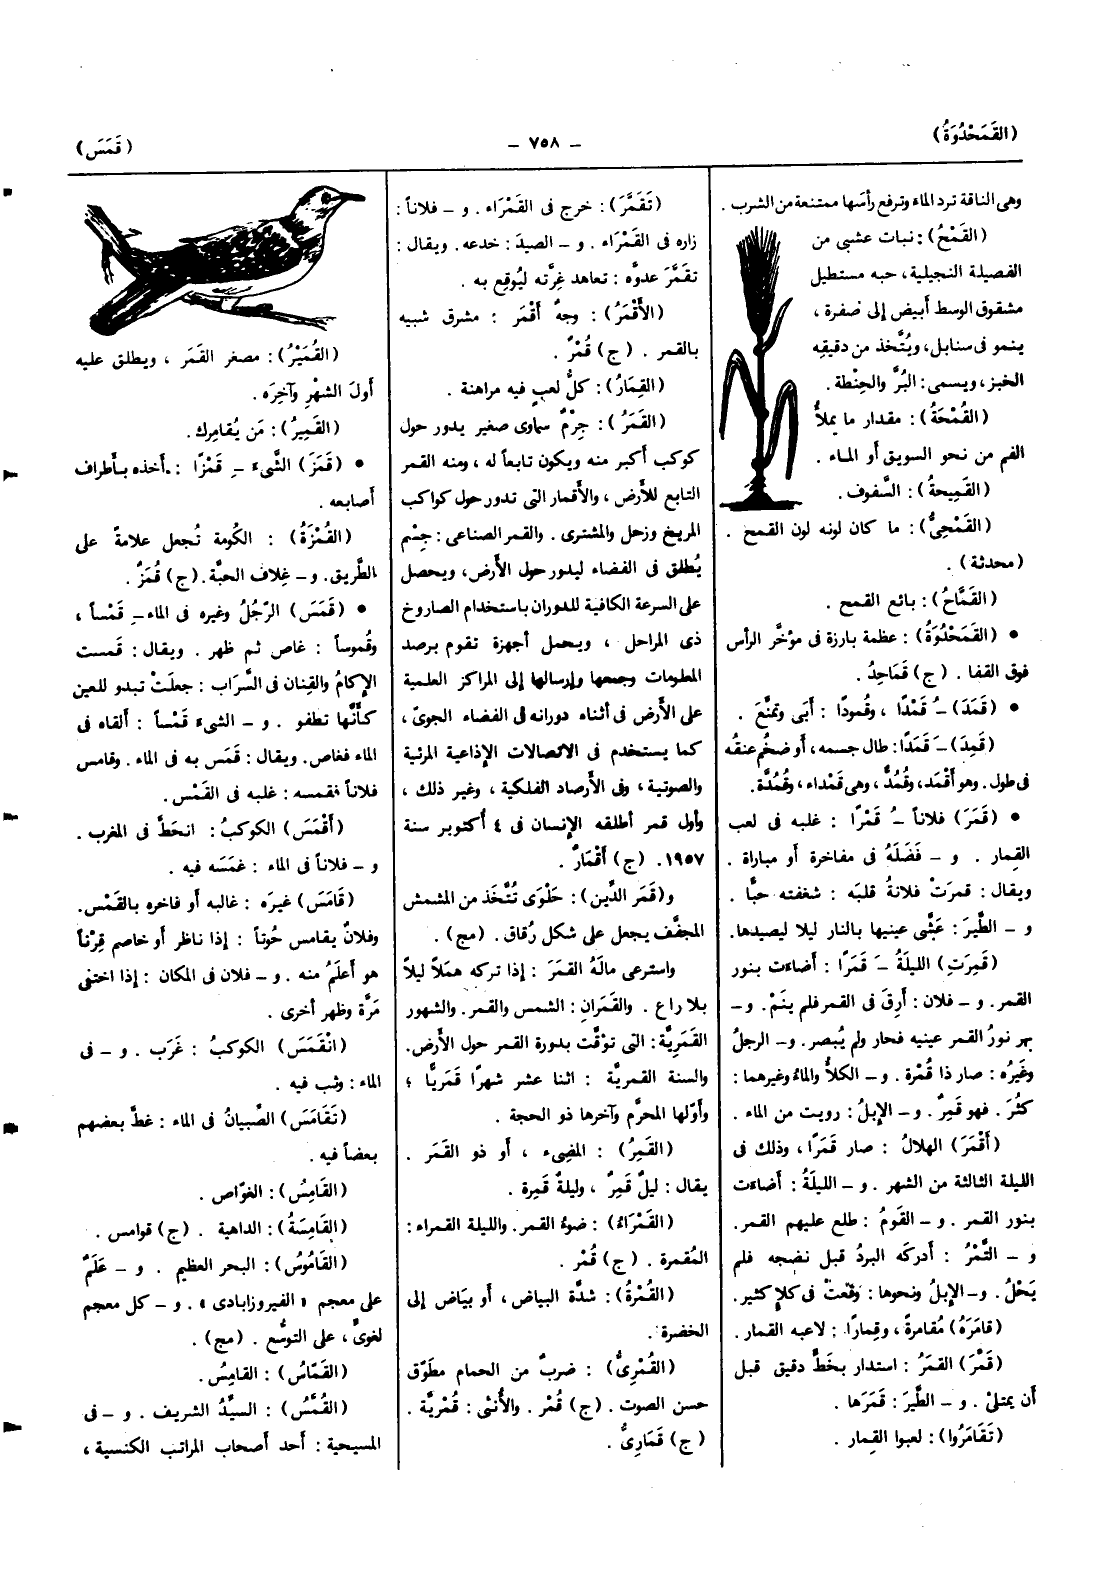 (القَمَحْدُوَةُ)
— ٧٥٨ —
(قَمَسَ)
وهى الناقة ترد الماء وترفع رأسها ممتنعة من الشرب .
(القَمْحُ): نبات عشبي من
الفصيلة النجيلية، حبه مستطيل
مشقوق الوسط أبيض إلى صفرة ،
ينمو فى سنابل، ويُتَّخذ من دقيقِه
الخبز، ويسمى: البُرَّ والحِنْطة.
(القُمْحَةُ): مقدار ما يملأُ
الفم من نحو السويق أو الماء .
(القَمِيحةُ): السَّفوف.
(القَمْحِىُّ): ما كان لونه لون القمح .
(محدثة) .
(القَمَّاحُ): بائع القمح .
● (القَمَحْدُوَةُ): عظمة بارزة فى مؤخَّر الرأس
فوق القفا . (ج) قَمَاحِدُ.
● (قَمَدَ) ـُ قَمْدًا ، وقُمودًا : أَبَى وتمنَّعَ .
(قَمِدَ) ـَ قَمَدًا: طال جسمه، أو ضخُم عنقُه
فى طول. وهو أَقْمَد، وقُمُدٌّ، وهى قَمْداء، وقُمُدَّة.
● (قَمَرَ) فلاناً ـُ قَمْرًا : غلبه فى لعب
القِمار . و ــ فَضَلَهُ فى مفاخرة أو مباراة .
ويقال : قمرَتْ فلانةُ قلبَه : شغفته حبًّا .
و ــ الطَّيرَ: عَشَّى عينيها بالنار ليلا ليصيدها.
(قَمِرَتِ) الليلةُ ـَ قَمَرًا : أضاءَت بنور
القمر. و ــ فلان: أَرِقَ فى القمر فلم ينَمْ. و ــ
بهر نورُ القمر عينيه فحار ولم يُبصر. و ــ الرجلُ
وغيرُه: صار ذا قُمْرة. و ــ الكلأُ والماءُ وغيرهما:
كثُرَ . فهو قَمِرٌ. و ــ الإبلُ : رويت من الماء .
(أَقْمَرَ) الهلالُ : صار قَمَرًا ، وذلك فى
الليلة الثالثة من الشهر . و ــ الليلَةُ: أضاءَت
بنور القمر . و ــ القَومُ : طلع عليهم القمر.
و ــ التَّمْرُ : أَدركَه البردُ قبل نضجه فلم
يَحْلُ. و ــ الإبلُ ونحوها: وقعَتْ فى كلإٍ كثير.
(قامَرَهُ) مُقامرةً، وقِمارًا: لاعبه القمار .
(قَمَّرَ) القمَرُ : استدار بخطٍّ دقيق قبل
أَن يمتلئ . و ــ الطَّيرَ : قَمَرَها .
(تَقَامَرُوا): لعبوا القِمار .
(تَقَمَّرَ): خرج فى القَمْرَاء . و ــ فلاناً :
زاره فى القَمْرَاء . و ــ الصيدَ: خدعه. ويقال:
تقَمَّرَ عدوَّه : تعاهد غِرَّته ليُوقِع به .
(الأَقْمَرُ) : وجهٌ أَقْمَر : مشرق شبيه
بالقمر . (ج) قُمْرٌ .
(القِمَارُ): كلُّ لعبٍ فيه مراهنة .
(القَمَرُ): جِرْمٌ سماوى صغير يدور حول
كوكب أكبر منه ويكون تابعاً له ، ومنه القمر
التابع للأَرض، والأَقمار التى تدور حول كواكب
المريخ وزحل والمشترى . والقمر الصناعى : جِسْم
يُطلق فى الفضاء ليدور حول الأَرض، ويحصل
على السرعة الكافية للدوران باستخدام الصاروخ
ذى المراحل ، ويحمل أجهزة تقوم برصد
المعلومات وجمعها وإرسالها إلى المراكز العلمية
على الأَرض فى أثناء دورانه فى الفضاء الجوىّ ،
كما يستخدم فى الاتصالات الإذاعية المرئية
والصوتية ، وفى الأَرصاد الفلكية ، وغير ذلك ،
وأول قمر أطلقه الإنسان فى ٤ أكتوبر سنة
١٩٥٧. (ج) أَقْمَارٌ .
و(قَمَر الدِّين): حَلْوَى تُتَّخَذ من المشمش
المجفَّف يجعل على شكل رُقاق . (مج) .
واسترعى مالَهُ القمَرَ : إذا تركه هَمَلًا ليلاً
بلا راع . والقَمَرانِ : الشمس والقمر. والشهور
القَمَرِيَّة: التى توَقَّت بدورة القمر حول الأَرض.
والسنة القمريَّة : اثنا عشر شهرًا قَمَريًّا ؛
وأوّلها المحرَّم وآخرها ذو الحجة .
(القَمِرُ) : المضِىء ، أو ذو القَمَر .
يقال : ليلٌ قَمِرٌ ، وليلةٌ قَمِرة .
(القَمْرَاءُ) : ضوءُ القمر. والليلة القمراء :
المُقمرة . (ج) قُمْر .
(القُمْرَةُ): شدَّة البياض ، أو بيَاض إلى
الخضرة .
(القُمْرِىُّ) : ضربٌ من الحمام مطَوَّق
حسن الصوت . (ج) قُمْر . والأُنثى : قُمْريَّة .
(ج) قَمَارِىُّ .
(القُمَيْرُ): مصغر القَمَر ، ويطلق عليه
أَولَ الشهْرِ وآخِرَه .
(القَمِيرُ): مَن يُقامِرك.
● (قَمَزَ) الشَّىءَ ـِ قَمْزًا : أخذه بأَطراف
أصابعه .
(القُمْزَةُ) : الكُومة تُجعل علامةً على
الطَّريق. و ــ غِلاف الحبَّة. (ج) قُمَزٌ .
● (قَمَسَ) الرّجُلُ وغيره فى الماء ـِ قَمْساً ،
وقُموساً : غاص ثم ظهر . ويقال : قَمست
الإكامُ والقِنان فى السَّراب : جعلَتْ تبدو للعين
كأَنَّها تطفو . و ــ الشيءَ قَمْساً : ألقاه فى
الماء فغاص. ويقال: قَمَس به فى الماء. وقامس
فلاناً فقمسه: غلبه فى القَمْس.
(أَقْمَسَ) الكوكبُ : انحَطَّ فى المغرب .
و ــ فلاناً فى الماء : غمَسَه فيه .
(قَامَسَ) غيرَه : غالبه أو فاخره بالقَمْس.
وفلانٌ يقامس حُوتاً : إذا ناظر أو خاصم قِرْناً
هو أَعلَمُ منه . و ــ فلان فى المكان : إذا اختفى
مَرَّة وظهر أخرى .
(انْقَمَسَ) الكوكبُ : غَرَب . و ــ فى
الماء : وثب فيه .
(تَقَامَسَ) الصِّبيانُ فى الماء : غطَّ بعضهم
بعضاً فيه .
(القَامِسُ): الغوّاص .
(القَامِسَةُ): الداهية . (ج) قوامس .
(القَامُوسُ): البحر العظيم . و ــ عَلَمٌ
على معجم « الفيروزابادى » . و ــ كل معجم
لغوىٍّ ، على التوسُّع . (مج) .
(القَمّاسُ): القامِسُ.
(القُمَّسُ): السيَّدُ الشريف . و ــ فى
المسيحية : أحد أصحاب المراتب الكنسية ،